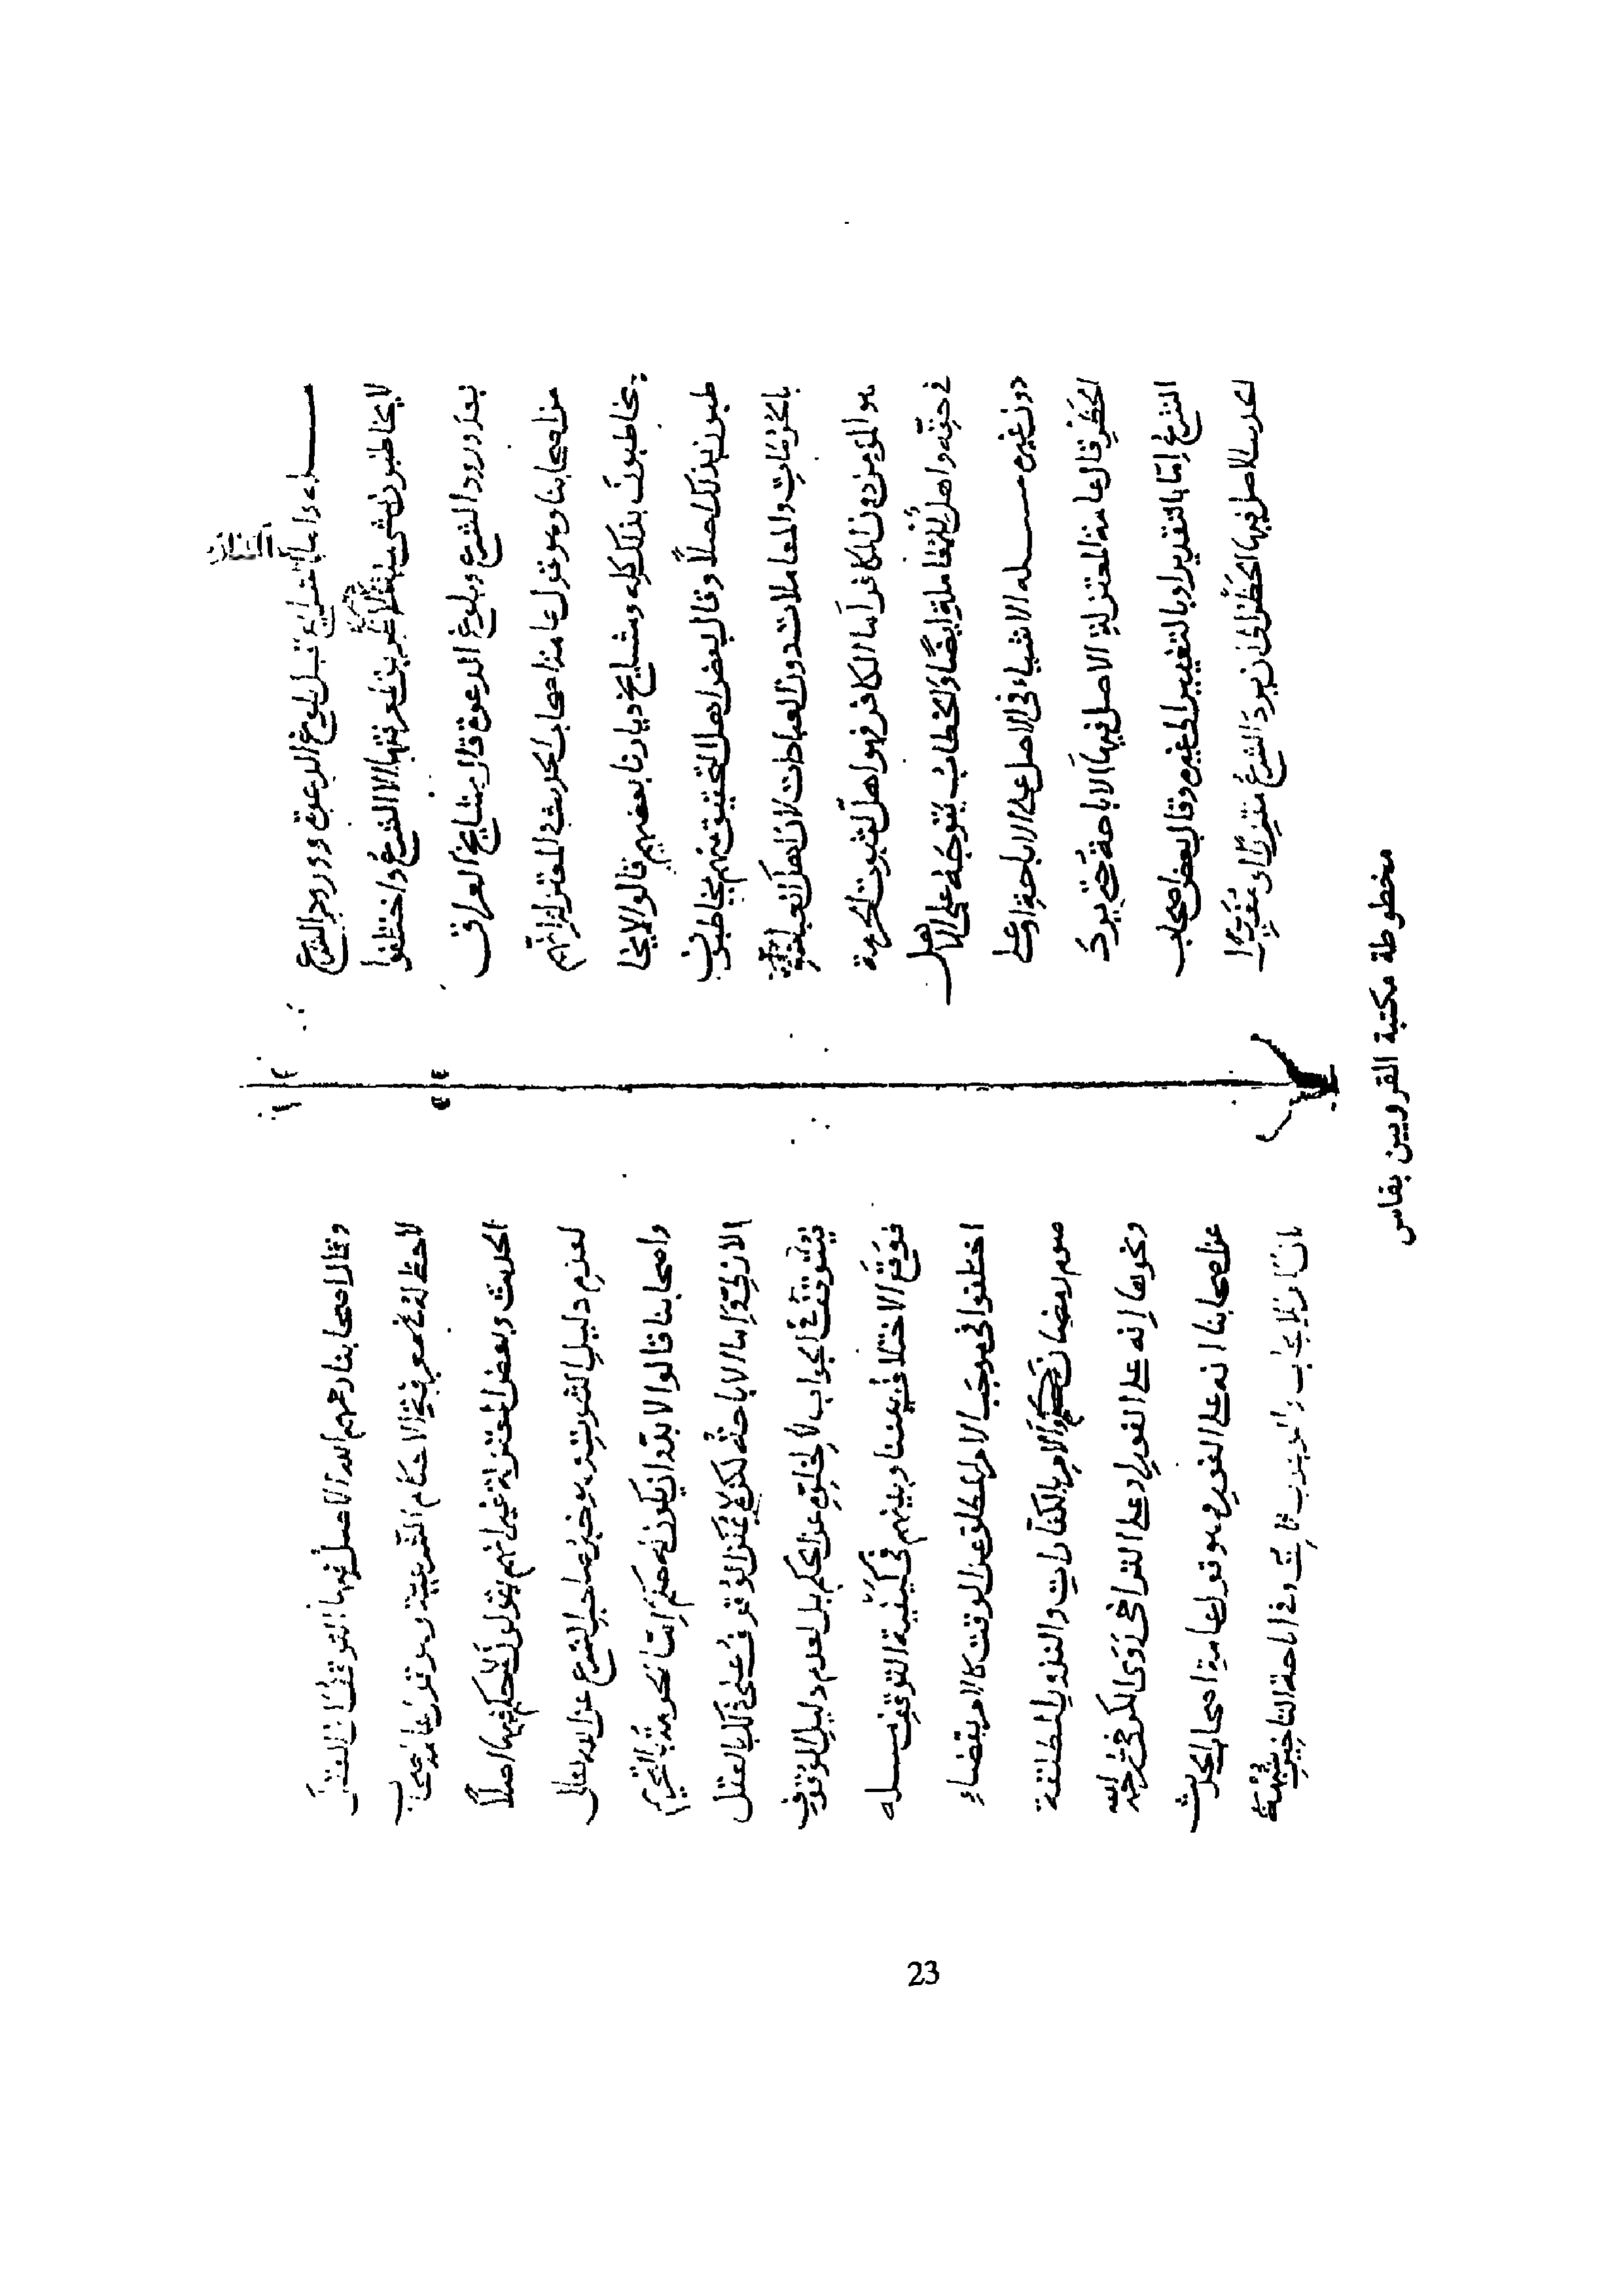 اداء واما الشرائع قبل بلوغ الدعوة وورود الشرع
لا يخاطبون بشى منها لان طريق معرفتها الا الشرع واختلفوا
بعد ورود الشرع وبلوغ الدعوة قال مشايخ العراق
من اصحابنا وهو قول عامة اصحاب الحديث والمعتزلة انهم
يخاطبون بذلك كله ومشايخ ديارنا بعضهم قالوا لا يخا
طبون بذلك اصلاً وقال بعض اهل التحقيق منهم يخاطبون
بالحرمات والمعاملات دون العبادات لان اهل العبادة
هو المؤمن دون الكافر اما الكافر فهو اهل لثبوت الحرمة
فى حقه واهل للمعاملة ايضًا والخطاب يتوجه على الاهل
دون غيره مسله الاشياء فى الاصل على الاباحة او على
الحظر قال عامة المعتزلة الاصل فيها الاباحة حتى يرد
الشرع اما بالتقدير او بالتغيير الى غيره وقال بعض اصحاب
الحديث الاصل فيها الحظر الى ان يرد الشرع مقررًا او مغيرًا
وقال اصحابنا رحمهم الله الاصل فيها التوقف لان العقل
لا حظ له فى معرفة الاحكام الشرعية وهو قول عامة اصحاب
الحديث وبعض المعتزلة غير انهم يقولون لا حكم فيها اصلاً
لعدم دليل الثبوت وهو خبر صاحب الشرع عن الله تعالى
واصحابنا قالوا لا بد وان يكون له حكم اما الحرمة بالتحريم
الازلى واما الاباحة لكن لا يمكن الوقوف على ذلك بالعقل
فيتوقف فى الجواب لا لخلوه عن الحكم بل لعدم دليل الوقوف
فوقع الاختلاف بيننا وبينهم فى كيفية التوقف مسله
اختلفوا فى موجب الامر المطلق عن الوقت كالامر بقضاء
صوم رمضان والامر بالكفارات والنذور المطلقة
ونحوها انه على الفور او على التراخى روى الكرخى رحمه الله
عن اصحابنا انه على الفور وهو قول عامة اصحاب الحديث
بان الامر للايجاب والوجوب ثابت وفى اباحة التاخير شبهة
مخطوطة مكتبة القرويين بفاس
23